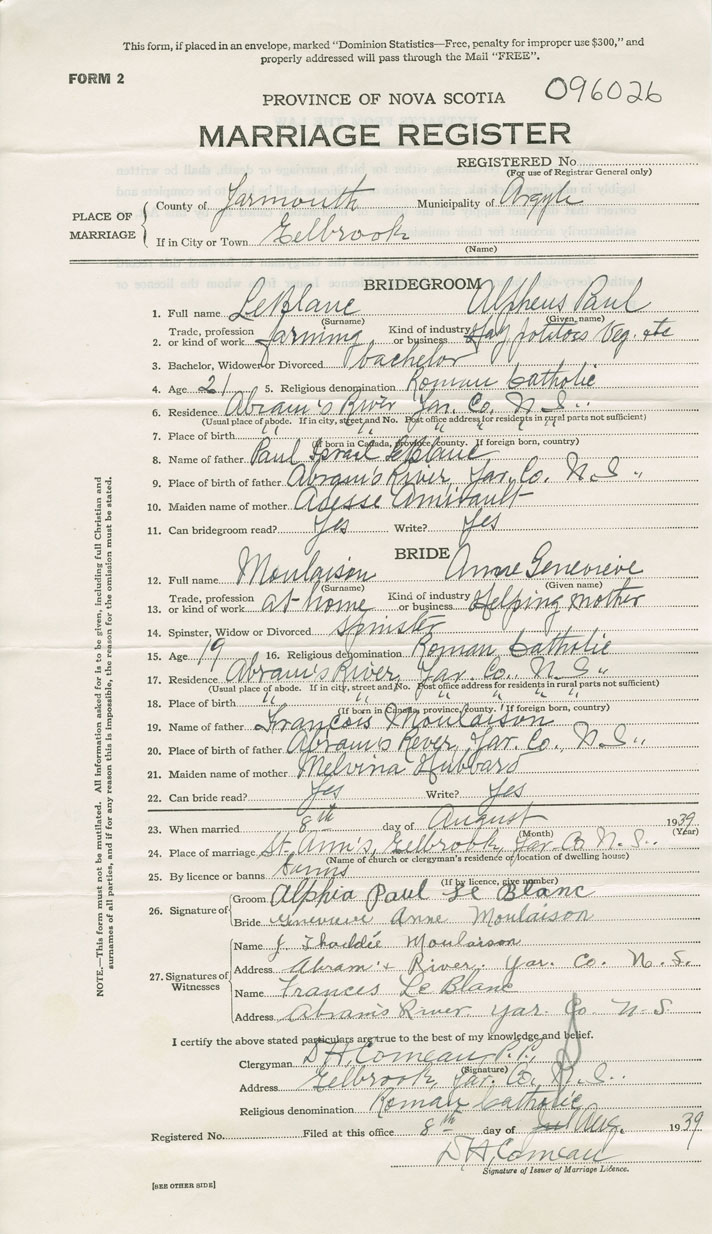 This form, if placed in an envelope, marked "Dominion Statistics—Free, penalty for improper use $300," and
properly addressed will pass through the Mail "FREE".
FORM 2
PROVINCE OF NOVA SCOTIA 096026
MARRIAGE REGISTER
REGISTERED No
(For use of Registrar General only)
PLACE OF MARRIAGE
County of Yarmouth Municipality of Argyle
If in City or Town Eelbrook
(Name)
BRIDEGROOM
1. Full name LeBlanc Alpheus Paul
(Surname) (Given name)
2. Trade, profession or kind of work farming Kind of industry or business Hay potitoes Veg. etc
3. Bachelor, Widower or Divorced bachelor
4. Age 21 5. Religious denomination Roman Catholic
6. Residence Abram's River Yar. Co. N.S.
(Usual place of abode. If in city, street and No. Post office address for residents in rural parts not sufficient)
7. Place of birth " " " " "
(If born in Canada, province, county. If foreign born, country)
8. Name of father Paul Israel LeBlanc
9. Place of birth of father Abram's River, Yar. Co. N.S.
10. Maiden name of mother Adesse Amirault
11. Can bridegroom read? Yes Write? Yes
BRIDE
12. Full name Moulaison Anne Genevieve
(Surname) (Given name)
13. Trade, profession or kind of work at home Kind of industry or business Helping mother
14. Spinster, Widow or Divorced Spinster
15. Age 19 16. Religious denomination Roman Catholic
17. Residence Abram's River, Yar. Co. N.S.
(Usual place of abode. If in city, street and No. Post office address for residents in rural parts not sufficient)
18. Place of birth " " " " "
(If born in Canada, province, county. If foreign born, country)
19. Name of father Francois Moulaison
20. Place of birth of father Abram's River, Yar. Co., N.S.
21. Maiden name of mother Melvina Hubbard
22. Can bride read? Yes Write? Yes
23. When married 8th day of August 1939
(Month) (Year)
24. Place of marriage St. Ann's, Eelbrook, Yar. Co. N.S.
(Name of church or clergyman's residence or location of dwelling house)
25. By licence or banns banns
(If by licence, give number)
26. Signature of
Groom Alphia Paul Le Blanc
Bride Genevieve Anne Moulaison
27. Signatures of Witnesses
Name J. Thaddée Moulaison
Address Abram's River. Yar. Co. N.S.
Name Frances Le Blanc
Address Abram's River. Yar. Co. N.S
I certify the above stated particulars are true to the best of my knowledge and belief.
Clergyman D.H. Comeau P.P.
(Signature)
Address Eelbrook, Yar. Co. N.S.
Religious denomination Roman Catholic
Registered No. Filed at this office 8th day of Aug. 1939
D.H. Comeau
Signature of Issuer of Marriage Licence.
[SEE OTHER SIDE]
NOTE.—This form must not be mutilated. All Information asked for is to be given, including full Christian and
surnames of all parties, and if for any reason this is impossible, the reason for the omission must be stated.